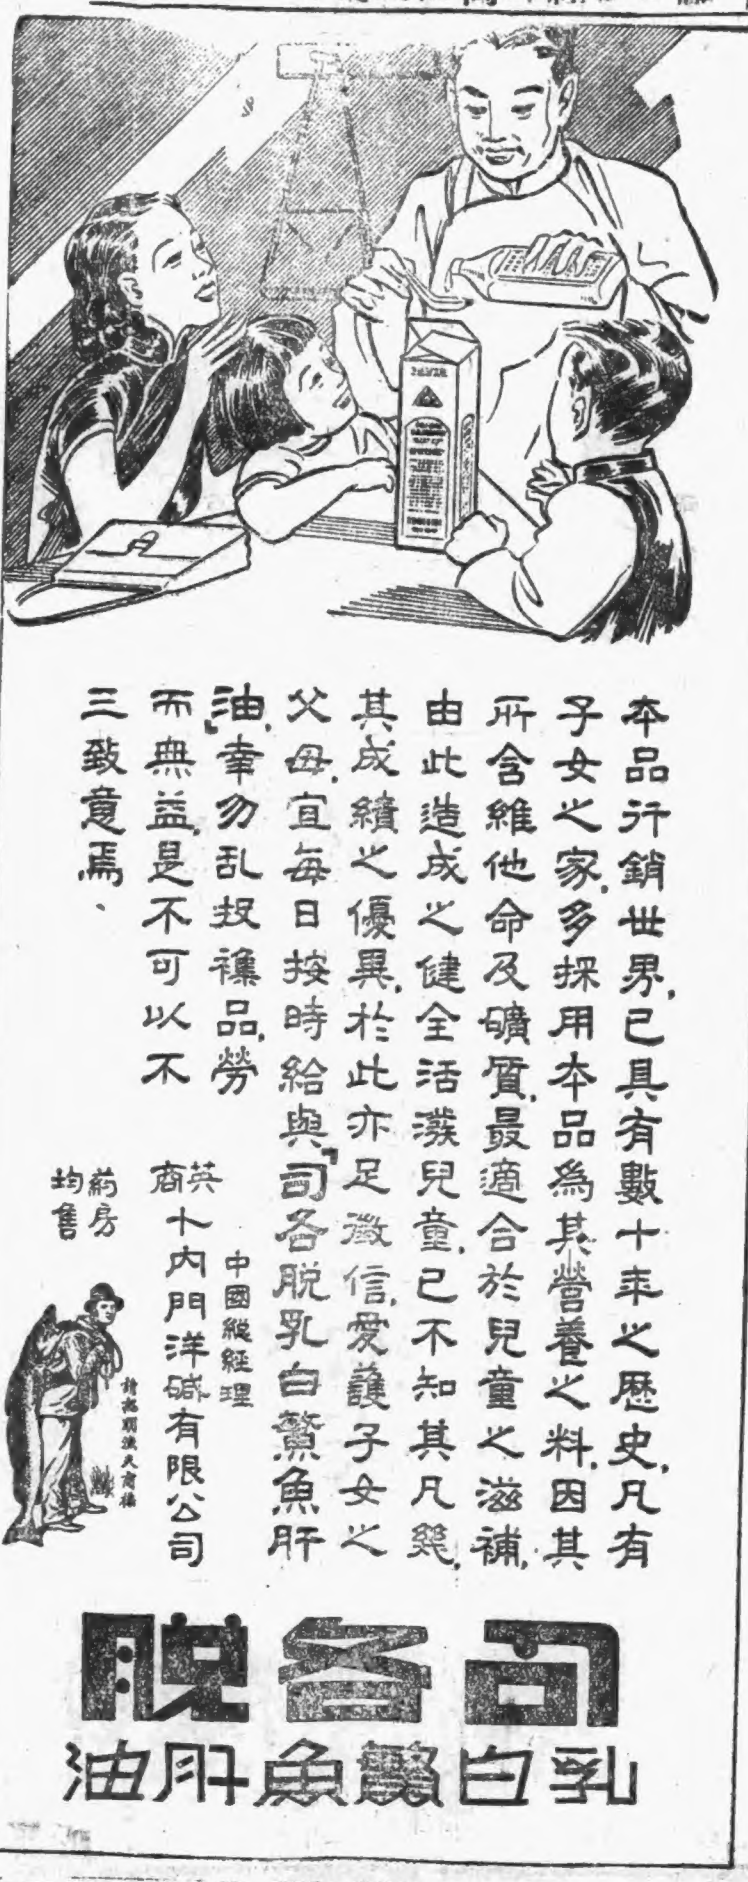 本品行銷世界，已具有數十年之歷史，凡有
子女之家，多採用本品為其營養之料，因其
所含維他命及礦質，最適合於兒童之滋補，
由此造成之健全活潑兒童，已不知其凡幾，
其成績之優異，於此亦足徵信，愛護子女之
父母，宜每日按時給與『司各脫乳白鰵魚肝
油』幸勿乱投襍品，勞
而無益，是不可以不
三致意焉、
中國總經理
英商
卜內門洋碱有限公司
药房
均售
司各脫
乳白鰵魚肝油